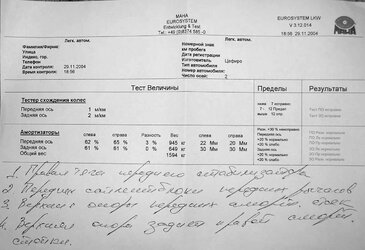 MAHA
EUROSYSTEM
Entwicklung & Test
Tel: +49 (0)8374 585-0
EUROSYSTEM LKW
V 3.12.014
18:56 29.11.2004
MAHA
Легк. автом.
Легк. автом.
Фамилия/Фирма:
Улица
Индекс, гор.
Телефон
Дата контроля: 29.11.2004
Время контроля: 18:56
Номерной знак
км пробега
Дата регистрации
Изготовитель Цефиро
Тип автомобиля
№ автомобиля:
Количество осей: 2
Тест Величины
Пределы
Результаты
Тестер схождения колес
Передняя ось 1 м/км
Задняя ось 2 м/км
7 исправен:
7 - 12 Предел
> 12 Неисправн
Амортизаторы слева справа Разность Вес слева справа
Передняя ось 62 % 65 % 3 % 945 кг 22 Мм 20 Мм
Задняя ось 61 % 61 % 0 % 649 кг 30 Мм 30 Мм
Общий вес 1594 кг
1. Правая тяга переднего стабилизатора
2. Передних сайлентблоки передних рычагов
3. Верхние опоры передних аморт. стоек
4. Верхняя опора задней правой аморт.
стойки.